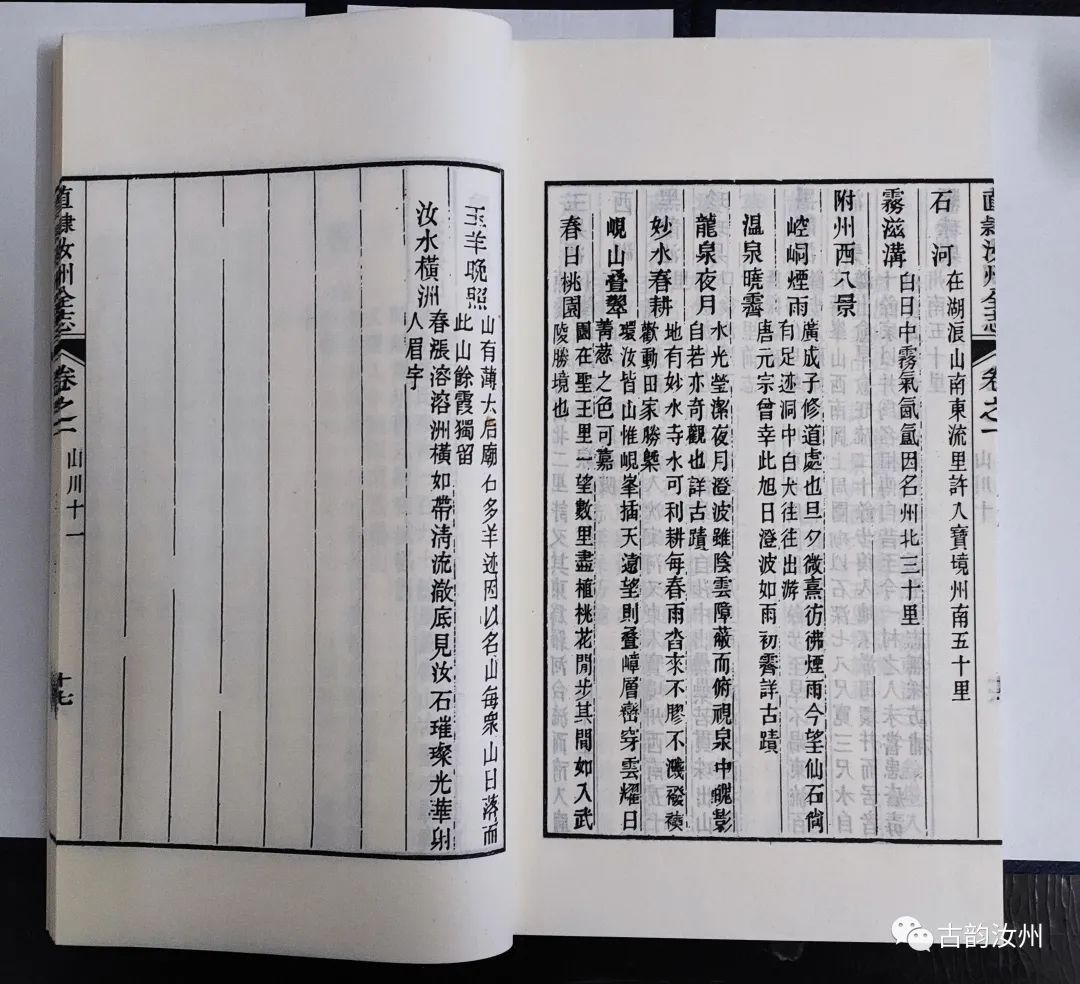 直隸汝州全志
卷之二
石河
在湖浪山南東流里許入寶境州南五十里
霧滋溝
白日中霧氣氤氳因名州北三十里
附州西八景
崆峒煙雨
廣成子修道處也旦夕微熹彷彿煙雨今望仙石尙
有足迹洞中白犬往往出游
溫泉曉霽
唐元宗曾幸此旭日澄波如雨初霽詳古蹟
龍泉夜月
水光瑩潔夜月澄波雖陰雲障蔽而俯視泉中蟾影
自若亦奇觀也詳古蹟
妙水春耕
地有妙水寺水可利耕每春雨沓來不膠不濺襏襫
歡動田家勝槩
峴山叠翠
環汝皆山惟峴峯插天遠望則叠嶂層巒穿雲耀日
菁葱之色可嘉
春日桃園
園在聖王里一望數里盡植桃花閒步其間如入武
陵勝境也
玉羊晚照
山有薄太后廟石多羊迹因以名山每衆山日落而
此山餘霞獨留
汝水橫洲
春漲溶溶洲橫如帶淸流澈底見汝石璀璨光華射
人眉宇
直隸汝州全志
卷之二
山川十一
十七
古韵汝州